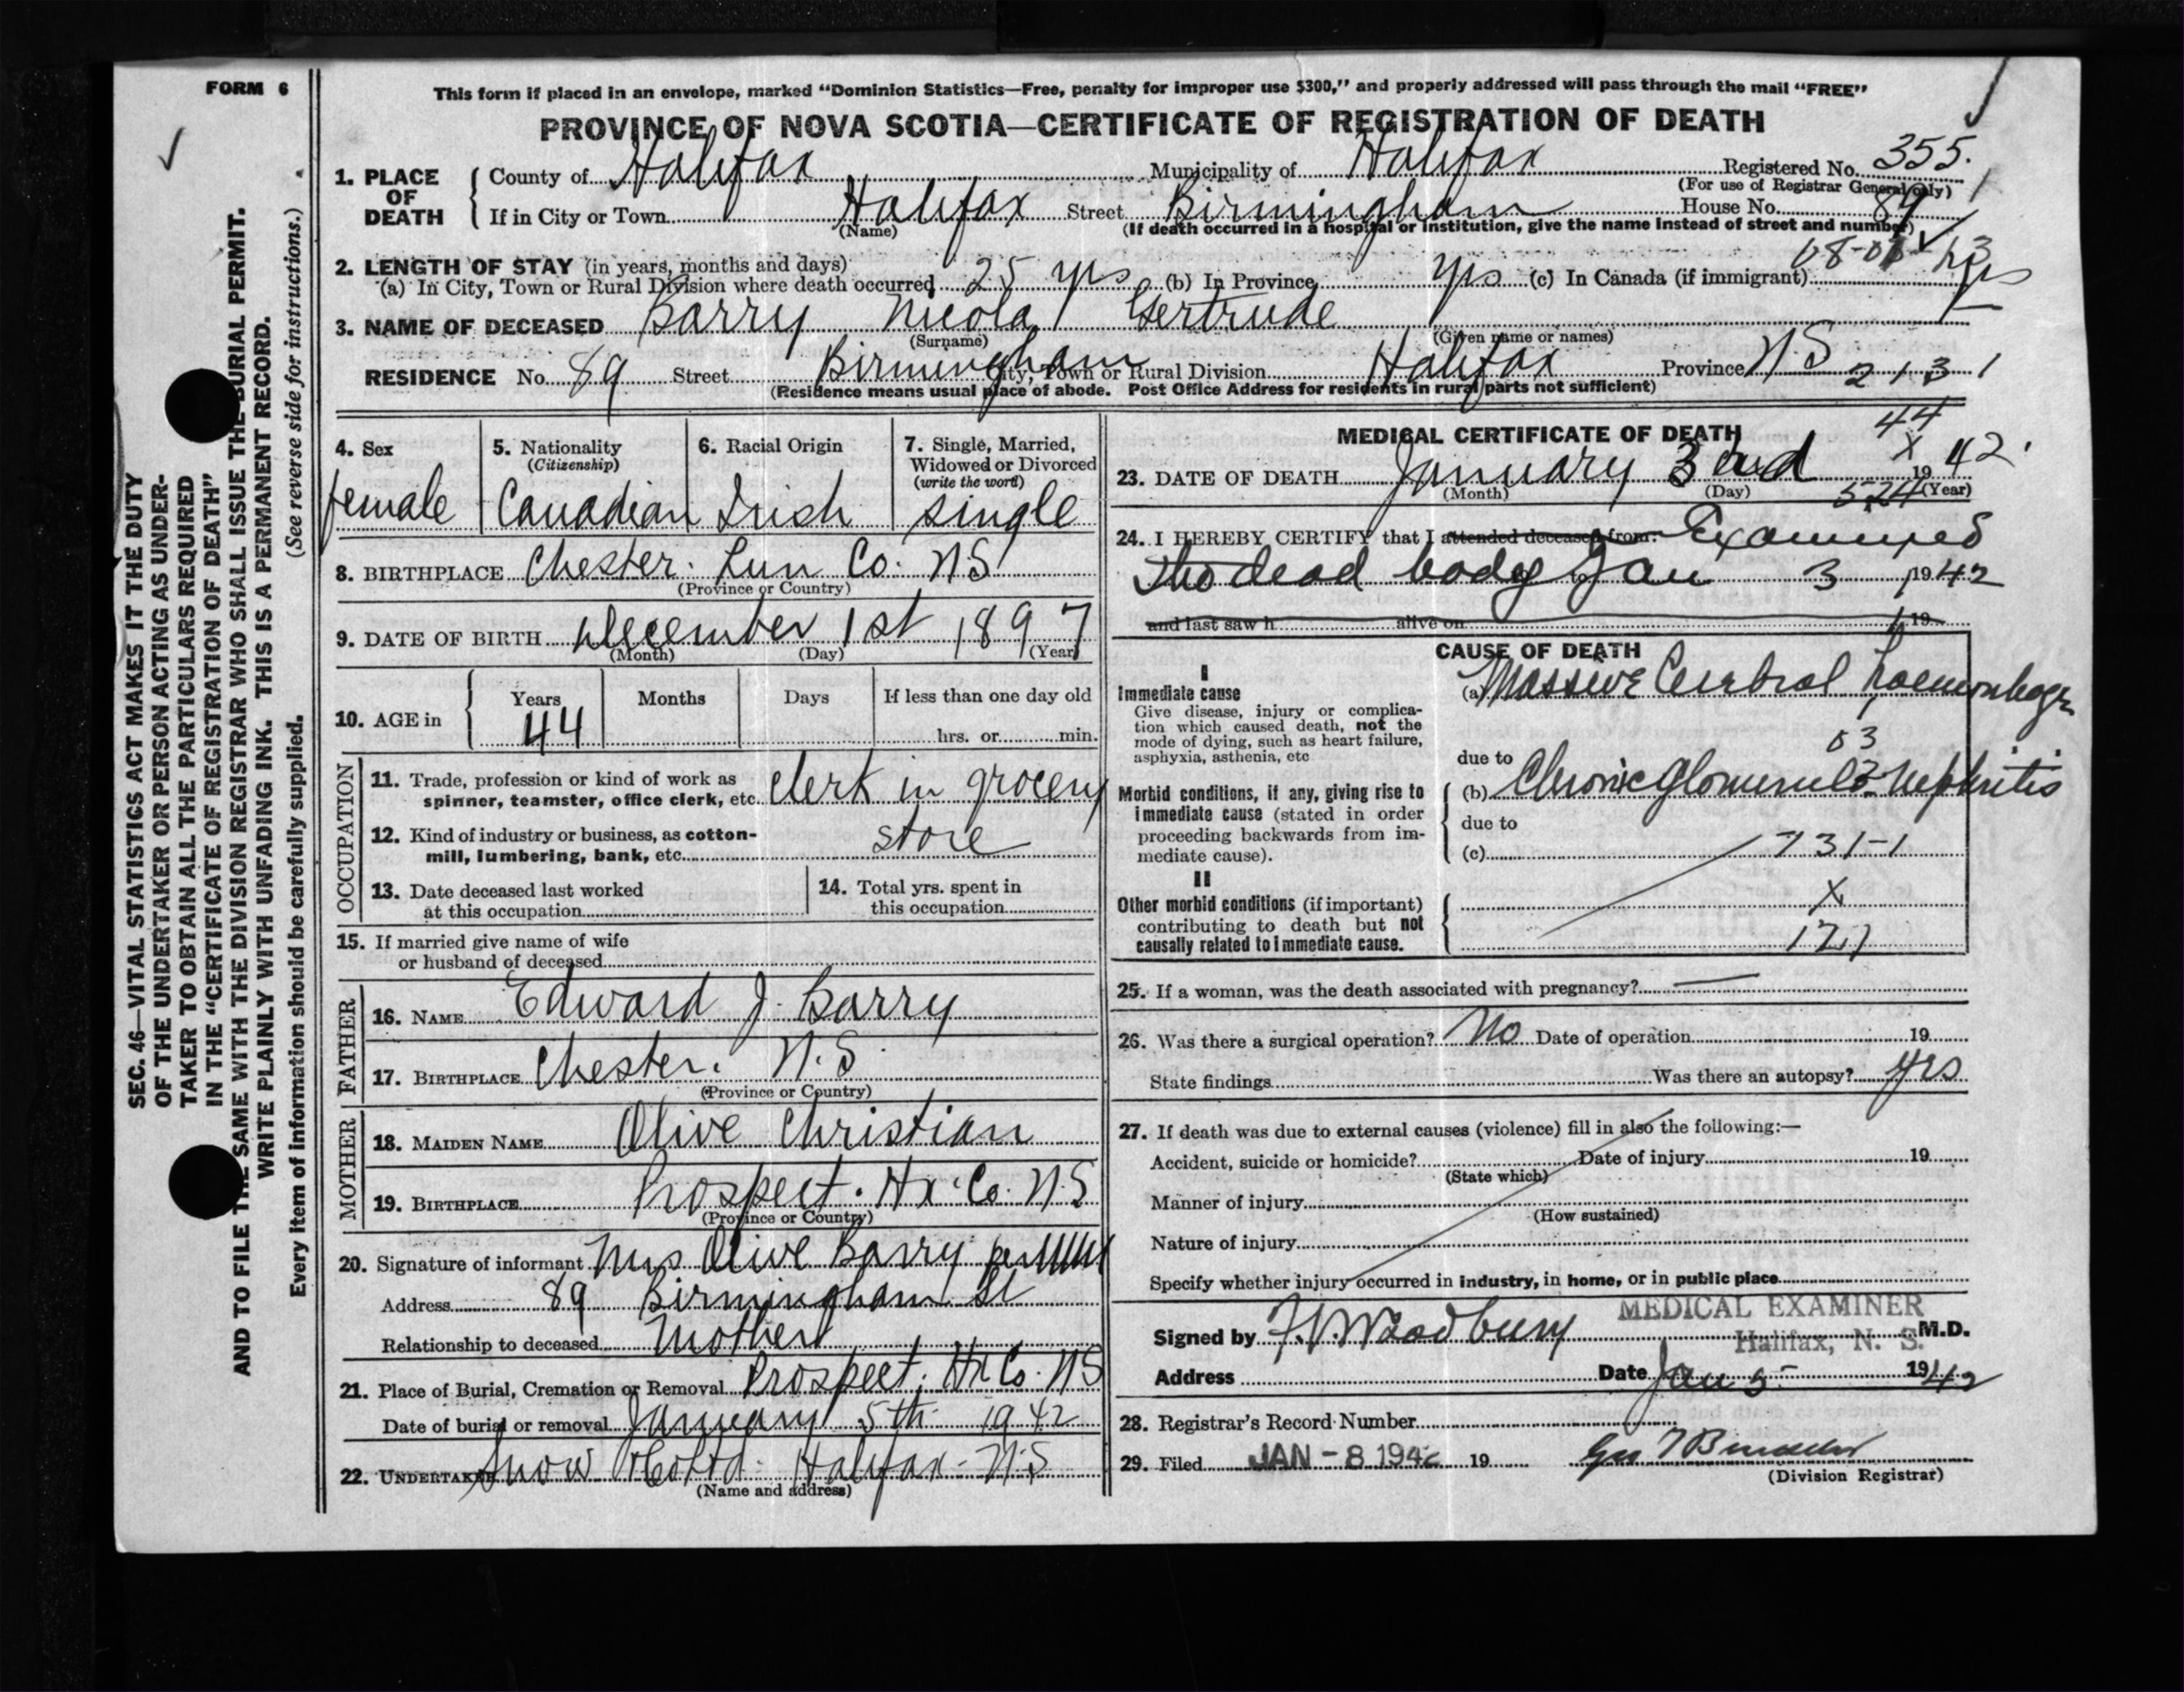 FORM 6
This form if placed in an envelope, marked "Dominion Statistics—Free, penalty for improper use $300," and properly addressed will pass through the mail "FREE"
PROVINCE OF NOVA SCOTIA—CERTIFICATE OF REGISTRATION OF DEATH
SEC. 46—VITAL STATISTICS ACT MAKES IT THE DUTY
OF THE UNDERTAKER OR PERSON ACTING AS UNDER-
TAKER TO OBTAIN ALL THE PARTICULARS REQUIRED
IN THE "CERTIFICATE OF REGISTRATION OF DEATH"
AND TO FILE THE SAME WITH THE DIVISION REGISTRAR WHO SHALL ISSUE THE BURIAL PERMIT.
WRITE PLAINLY WITH UNFADING INK. THIS IS A PERMANENT RECORD.
Every item of information should be carefully supplied. (See reverse side for instructions.)
1. PLACE OF DEATH
County of Halifax Municipality of Halifax Registered No. 355.
(For use of Registrar General only)
If in City or Town Halifax Street Birmingham House No. 89
(Name) (If death occurred in a hospital or institution, give the name instead of street and number)
2. LENGTH OF STAY (in years, months and days)
(a) In City, Town or Rural Division where death occurred 25 yrs (b) In Province yrs (c) In Canada (if immigrant) yrs
3. NAME OF DECEASED Barry Nicola Gertrude
(Surname) (Given name or names)
RESIDENCE No. 89 Street Birmingham City, Town or Rural Division Halifax Province N.S 2131
(Residence means usual place of abode. Post Office Address for residents in rural parts not sufficient)
4. Sex
female
5. Nationality
(Citizenship)
Canadian
6. Racial Origin
Irish
7. Single, Married,
Widowed or Divorced
(write the word)
single
8. BIRTHPLACE Chester. Lun Co. N.S
(Province or Country)
9. DATE OF BIRTH December 1st 1897
(Month) (Day) (Year)
10. AGE in
Years Months Days If less than one day old
44 hrs. or min.
OCCUPATION
11. Trade, profession or kind of work as
spinner, teamster, office clerk, etc. Clerk in grocery
12. Kind of industry or business, as cotton-
mill, lumbering, bank, etc. store
13. Date deceased last worked
at this occupation
14. Total yrs. spent in
this occupation
15. If married give name of wife
or husband of deceased
FATHER
16. NAME Edward J. Barry
17. BIRTHPLACE Chester. N.S.
(Province or Country)
MOTHER
18. MAIDEN NAME Olive Christian
19. BIRTHPLACE Prospect. Hx. Co. N.S
(Province or Country)
20. Signature of informant Mrs Olive Barry per
Address 89 Birmingham St
Relationship to deceased Mother
21. Place of Burial, Cremation or Removal Prospect, Hx Co. NS
Date of burial or removal January 5th 1942
22. UNDERTAKER Snow & Co Ltd. Halifax - N.S
(Name and address)
MEDICAL CERTIFICATE OF DEATH
44
X
23. DATE OF DEATH January 3 1942.
(Month) (Day) (Year)
24. I HEREBY CERTIFY that I attended deceased from: Examined
the dead body Jan 3 1942
and last saw h alive on 19
CAUSE OF DEATH
I
Immediate cause
Give disease, injury or complica-
tion which caused death, not the
mode of dying, such as heart failure,
asphyxia, asthenia, etc
(a) Massive Cerebral haemorrhage
83
due to
Morbid conditions, if any, giving rise to
immediate cause (stated in order
proceeding backwards from im-
mediate cause).
(b) Chronic Glomerulo Nephritis
due to
(c) 731-1
II
Other morbid conditions (if important)
contributing to death but not
causally related to immediate cause.
X
25. If a woman, was the death associated with pregnancy? —
26. Was there a surgical operation? No Date of operation 19
State findings Was there an autopsy? yes
27. If death was due to external causes (violence) fill in also the following:—
Accident, suicide or homicide? Date of injury 19
(State which)
Manner of injury
(How sustained)
Nature of injury
Specify whether injury occurred in industry, in home, or in public place
MEDICAL EXAMINER
Signed by Woodbury Halifax, N. S. M.D.
Address Date Jan 5 1942
28. Registrar's Record Number
29. Filed JAN - 8 1942 19
(Division Registrar)